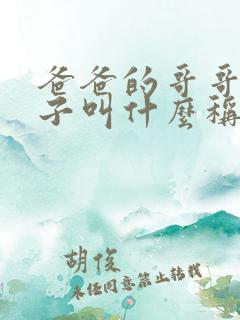 爸爸的哥哥
子叫什麼稱
胡俊
未经同意禁止转载